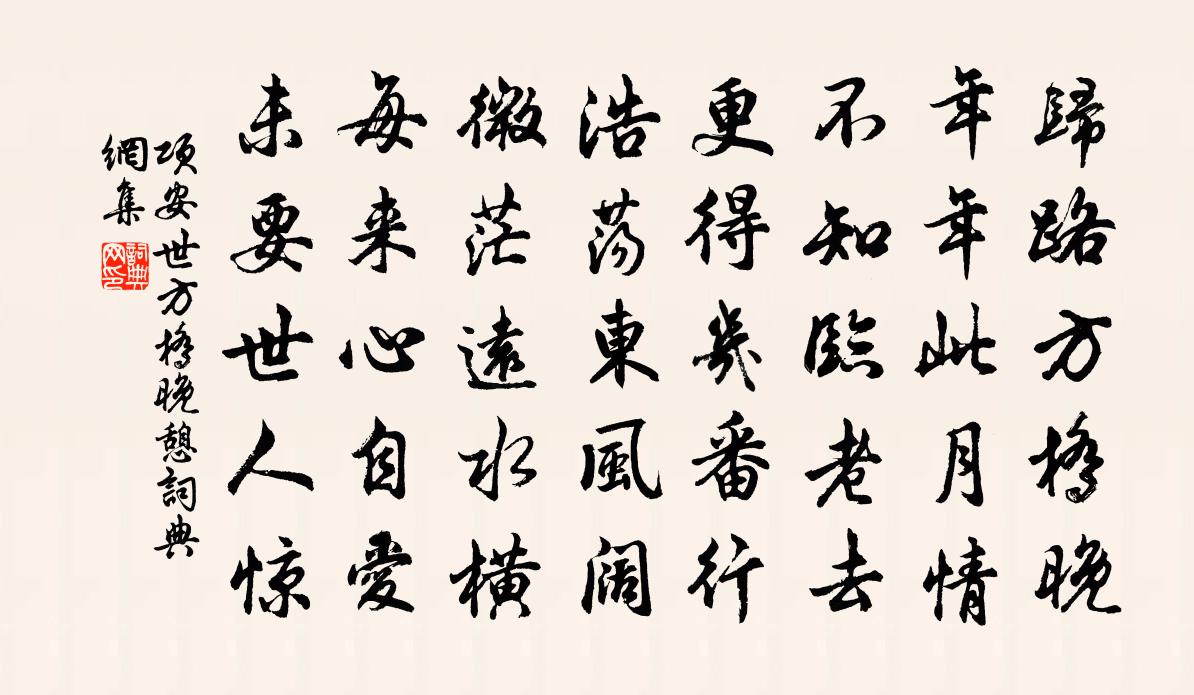 歸路方橋晚
年年此月情
不知臨老去
更得幾番行
浩蕩東風闊
微茫遠水橫
每来心自愛
未要世人惊
項安世方橋晚憩詞典
網集
詞典
网印